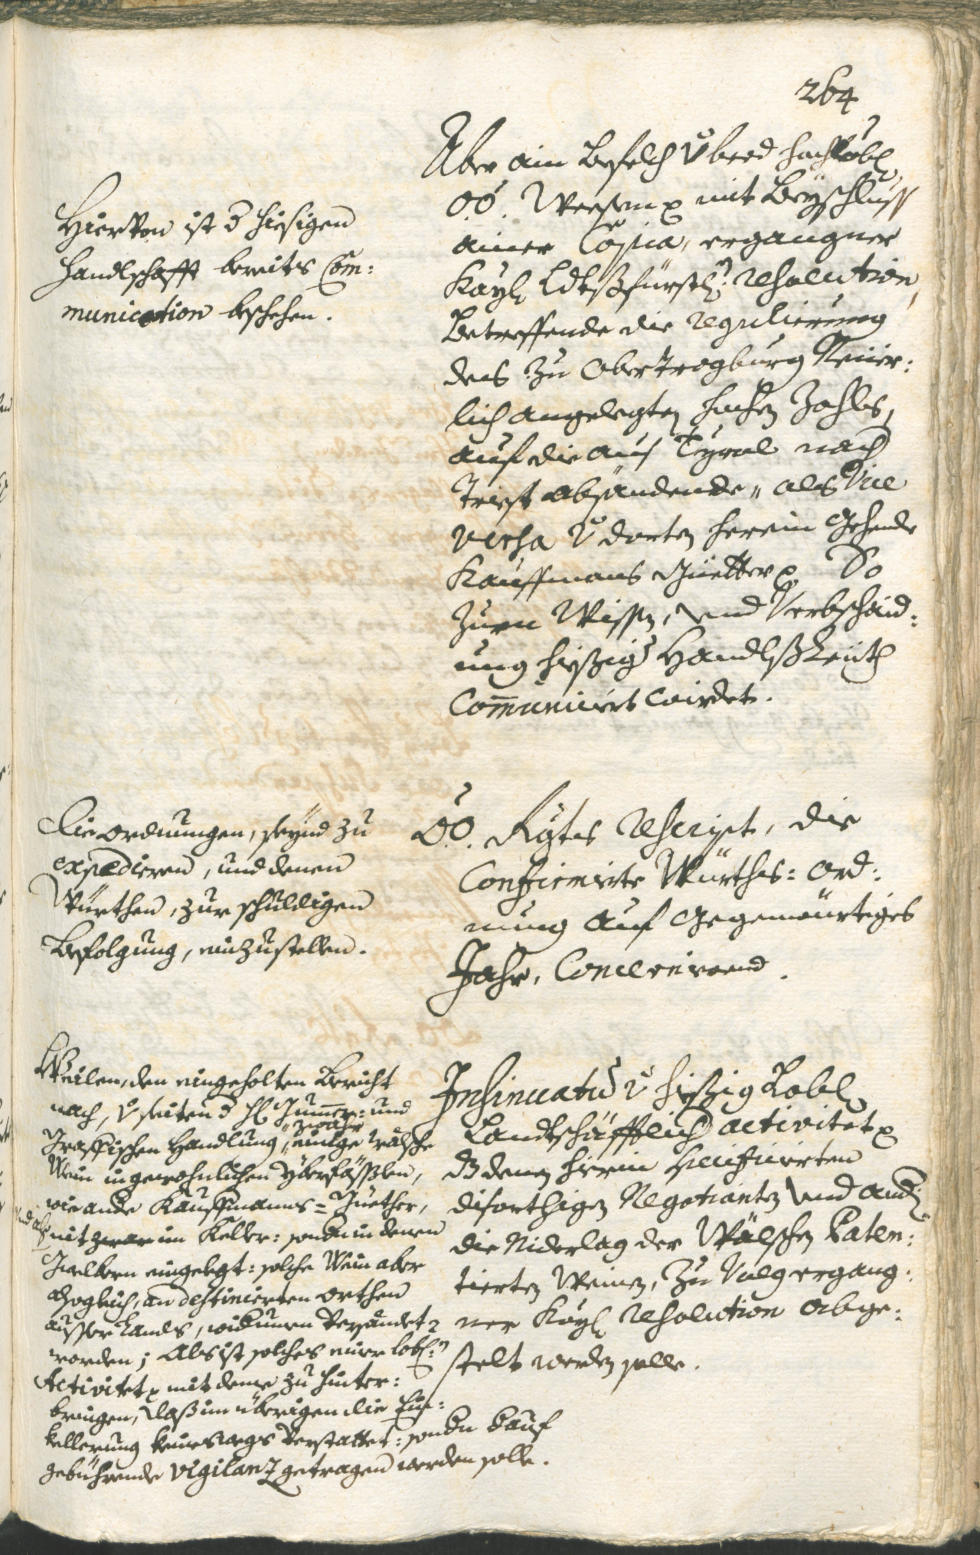 264
Über ain Befelch v beed hochlöbl
OÖ. Weesen p mit Beyschluss
ainer Copia, ergangner
Kayl Ldtsfürstl: Resolution,
Betreffende die regulierung
des zu Obertrogburg Neuer:
lich angelegten hochen Zohls,
auf die aus Tyrol nach
Triest absändende, als Vice
versa v dorten herein gehende
Kauffmans Güetter p So
zum Wissen, und Verbschaid:
ung hießig Handlßleuth
Communiciert wirdet.
Hiervon ist d hiesigen
Handlschafft bereits Com:
munication beschehen.
ÖO. Rgts Rescript, die
Confirmierte Würths: Ord:
nung auf Gegenwürtiges
Jahr, Concernierend.
Die ordnungen, seynd zu
expedieren, und denen
Würthen, zur schuldigen
Befolgung, einzustellen.
Insinuatum v hießig Lobl
Landtschäfftlich activitet p
dz denen hierin
diserthigen Negotianten und auch
die Niderlag der Wälschen Paten:
tierten Weinen, zu Volg ergang:
ner Kayl Resolution abge:
stelt werden solle.
Weilen, den eingeholten Bericht
nach, v seiten d H und
Handlung, zwahr einige wälsche
Wein in gewohnlichen Yberfässlen,
wie ande Kauffmanns= Güether,
nit zwar im Keller: sondn in denen
Gwelbern eingelegt: solche Wein aber
also gleich, an destinierten orthen
ausser Lands, widerumen Versändet
worden; Als ist solches einer lobl:
Activitet p mit deme zu hinter:
bringen, dass im übrigen die Ein:
kellerung keineswegs Verstattet: sondn darauf
gebührende vigilanz getragen werden solle.